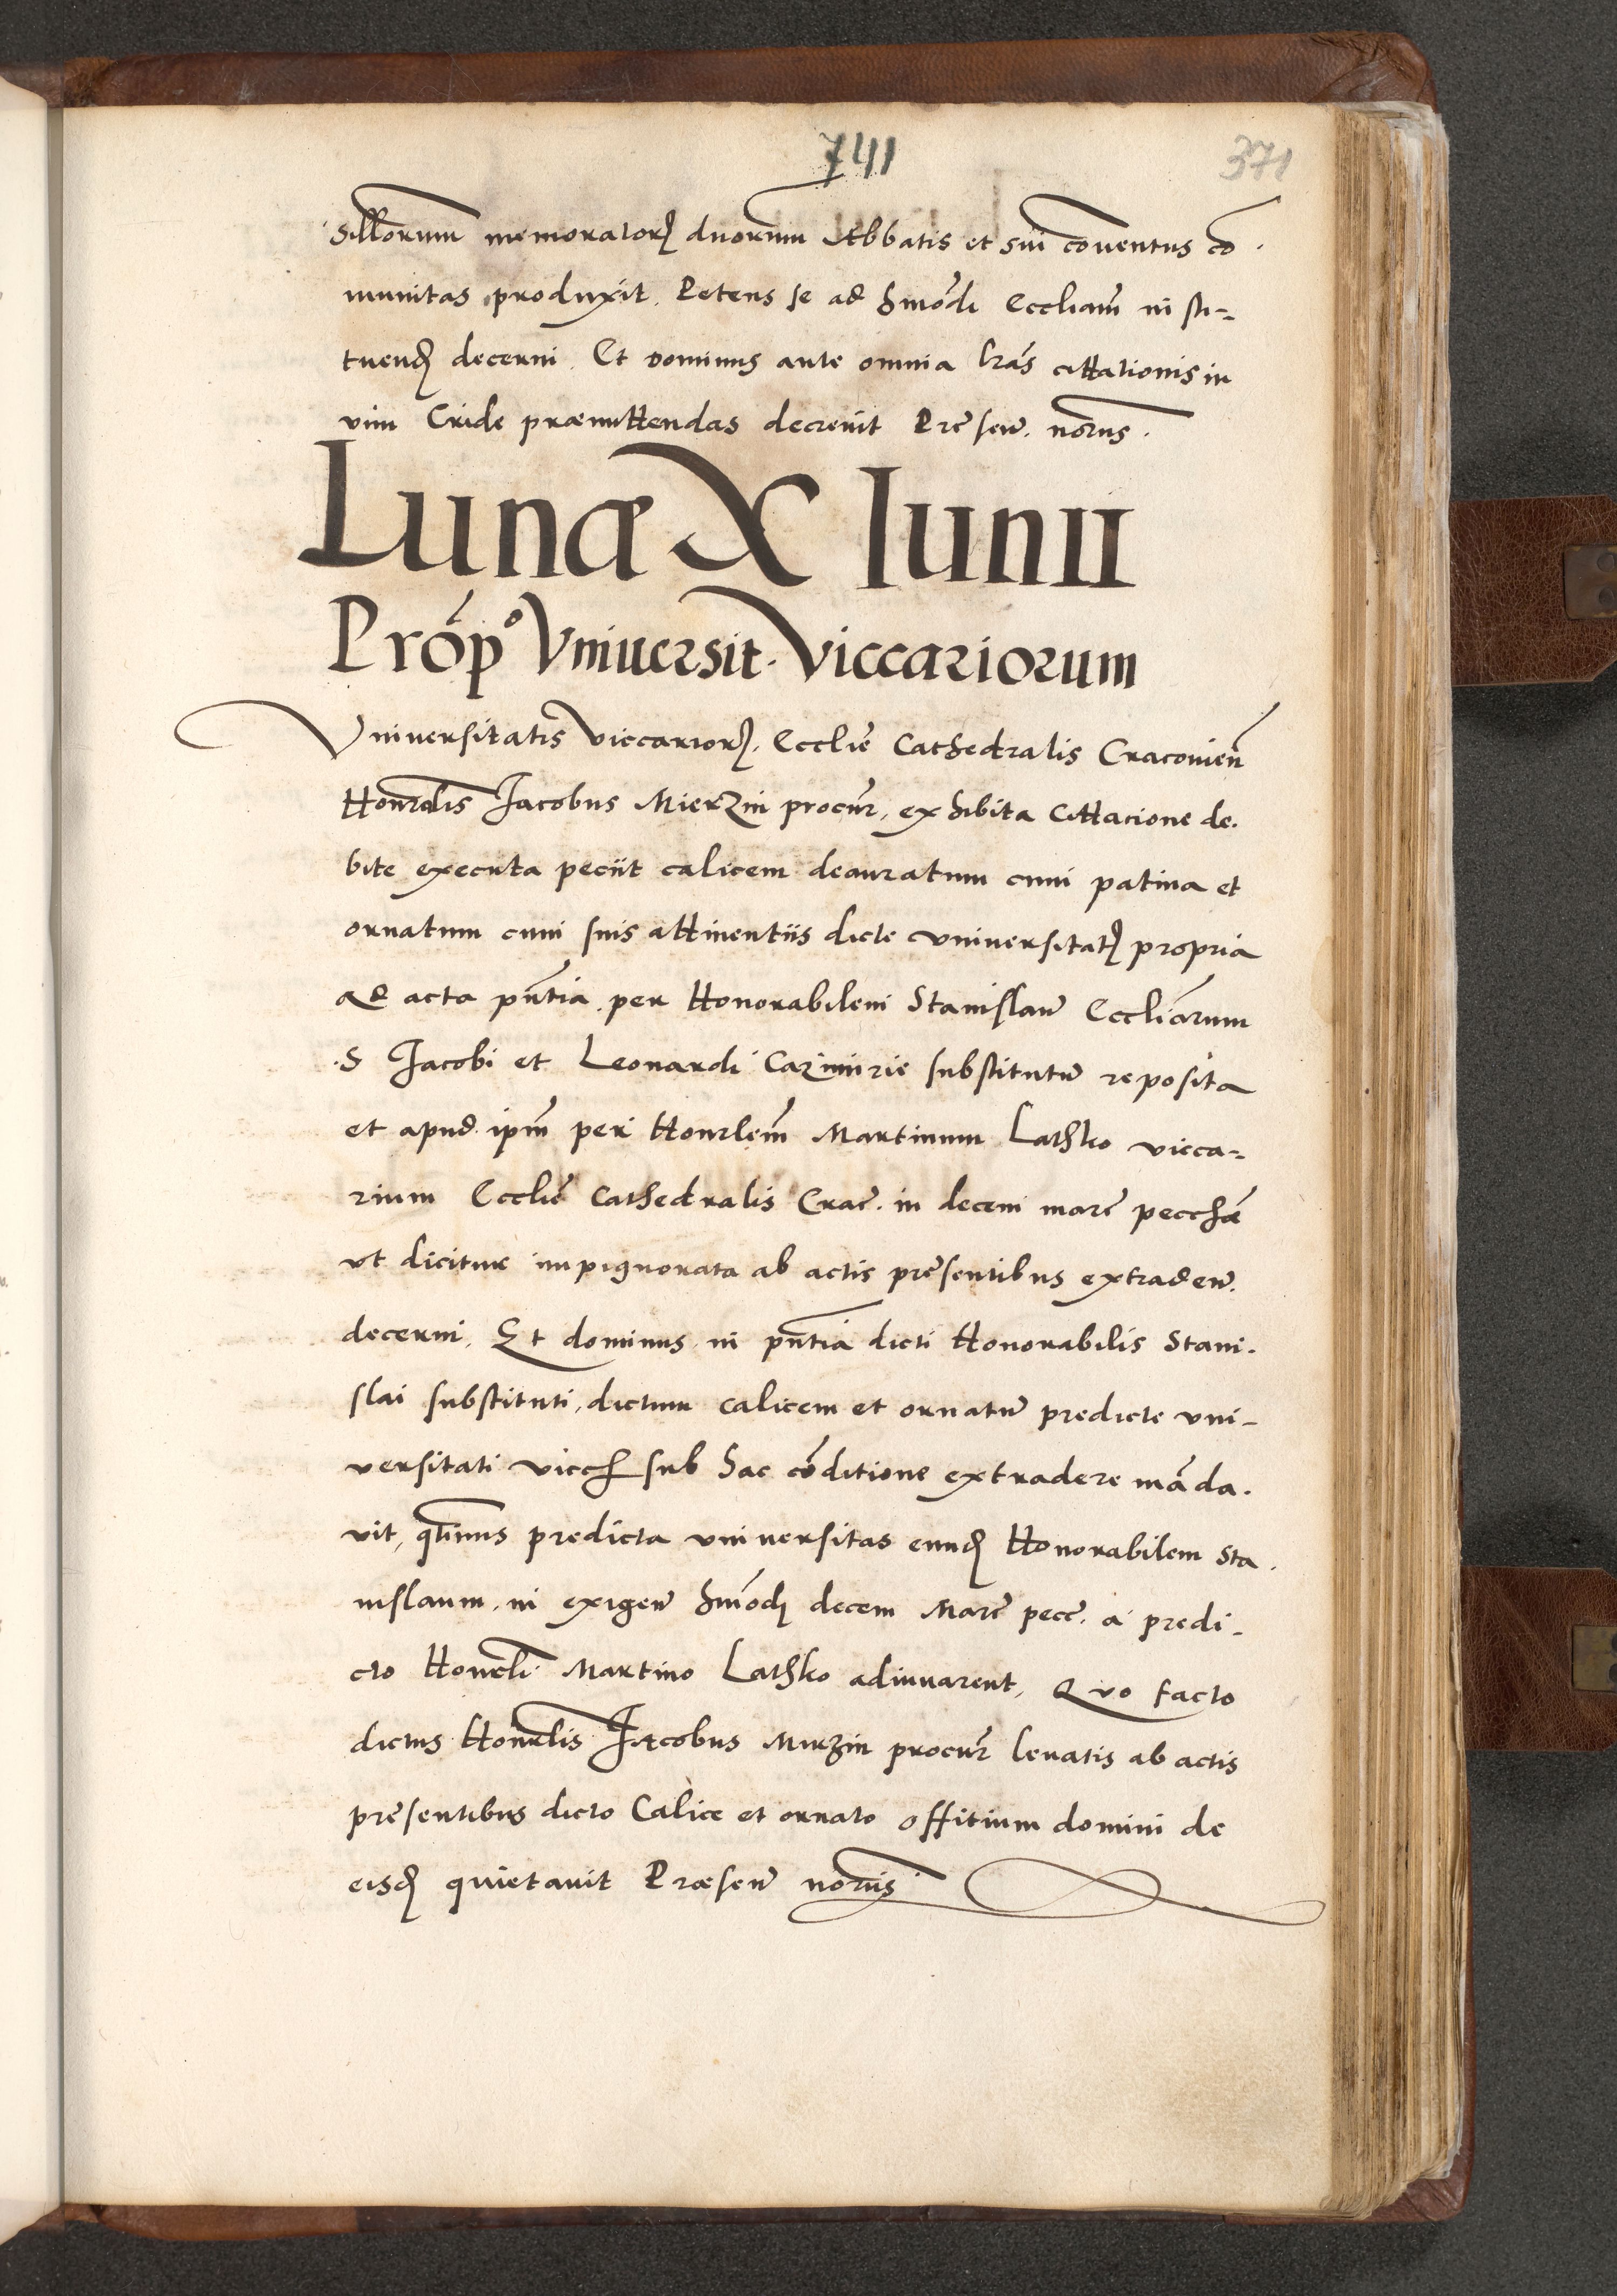 741
371
Sillorum memoratorꝝ duorum Abbatis et sui conventus cō
munitas produxit. Petens se ad hmōdi Eccliam̄ in sti-
tuenḍ decerni. Et dominus ante omnia lrās cittationis in
vim Cride præmittendas decrevit Prēsen̄. norus.
Lunæ X Iunii
Pro p° Vniversit. Viccariorum
Vniversitatis Viccariorꝝ. Ecclīe Cathedralis Cracovien̄
Honr̄alis Jacobus Mierzin procūr, exhibita Cittacione de.
bite executa peciit calicem deauratum cum patina et
ornatum cum suis attinentiis dicte universitatꝭ propria
ad acta pn̄tia per Honorabilem Stanislau̅ Eccliārum
.S Jacobi et Leonardi Cazimirie substitutu̅ reposita
et apud ipm̄ per Honrlem̄ Martinum Lathko vicca-
rium Ecclīe Cathedralis Crac̄. in decem marc̄ pecchæ
ut dicitur impignorata ab actis prēsentibus extraden̄.
decerni. Et dominus in pn̄tia dicti Honorabilis Stani.
slai substituti, dictum calicem et ornatu̅ predicte uni-
versitati vicch sub hac cōditione extradere māda.
vit, qt̄inus predicta universitas eundꝫ Honorabilem Sta.
nislaum, in exigen̄ hmōdꝫ decem Marc̄ pecc̄. a predi-
cto Honrli Martino Lathko adiuvarent, Quo facto
dictus Honr̄lis Jacobus Mirzin procūr levatis ab actis
prēsentibus dicto Calice et ornato offitium domini de
eisdꝫ quietavit Præsen̄ norīs